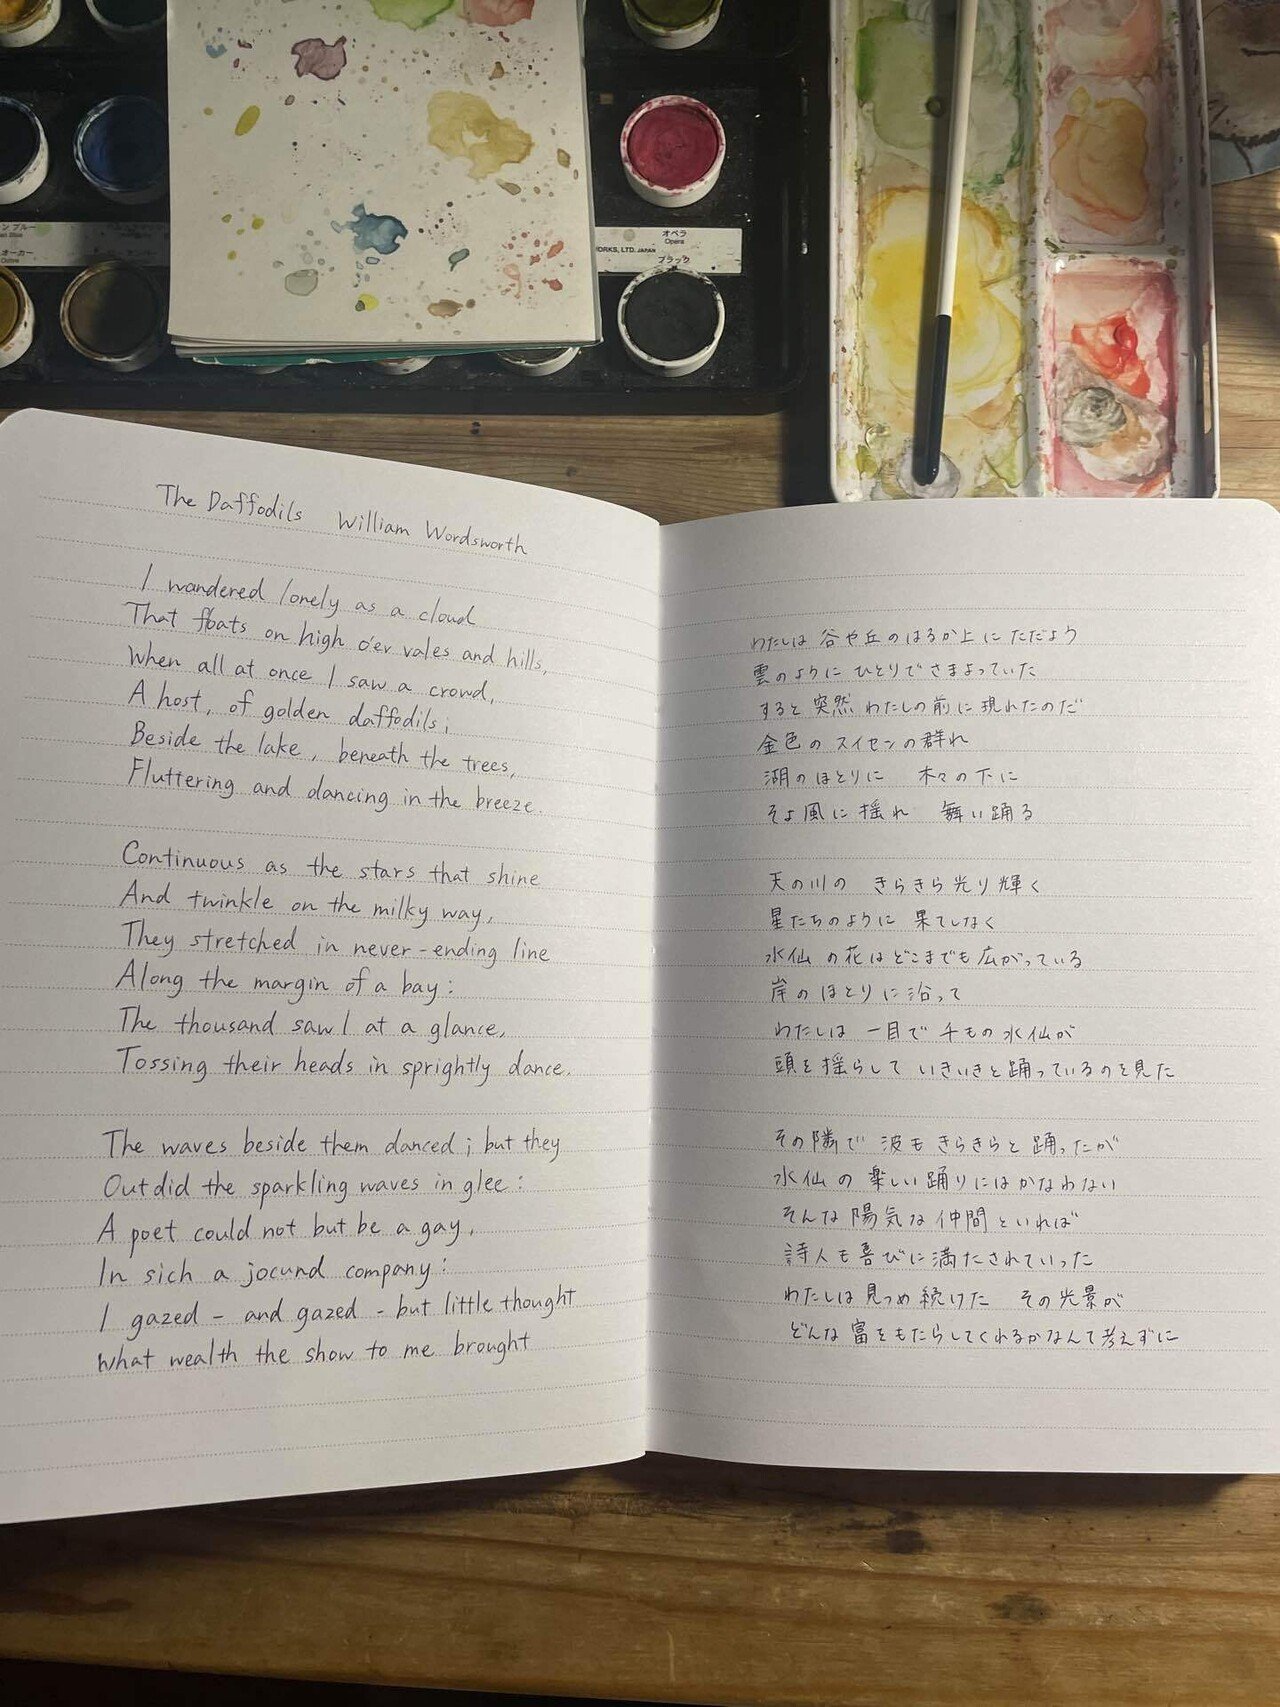 ン ブルー
オーカー
Ochre
オペラ
Opera
ORKS, LTD. JAPAN
ブラック
The Daffodils William Wordsworth
I wandered lonely as a cloud
That floats on high o'er vales and hills,
When all at once I saw a crowd,
A host, of golden daffodils;
Beside the lake, beneath the trees,
Fluttering and dancing in the breeze.
Continuous as the stars that shine
And twinkle on the milky way,
They stretched in never-ending line
Along the margin of a bay:
The thousand saw I at a glance,
Tossing their heads in sprightly dance.
The waves beside them danced; but they
Outdid the sparkling waves in glee:
A poet could not but be a gay,
In sich a jocund company:
I gazed - and gazed - but little thought
What wealth the show to me brought
わたしは 谷や丘のはるか上に ただよう
雲のように ひとりで さまよっていた
すると 突然 わたしの前に 現れたのだ
金色の スイセンの群れ
湖のほとりに 木々の下に
そよ風に揺れ 舞い踊る
天の川の きらきら光り輝く
星たちのように 果てしなく
水仙の花は どこまでも広がっている
岸のほとりに沿って
わたしは 一目で 千もの水仙が
頭を揺らして いきいきと踊っているのを見た
その隣で 波もきらきらと 踊ったが
水仙の 楽しい踊りにはかなわない
そんな 陽気な仲間といれば
詩人も喜びに満たされていった
わたしは見つめ続けた その光景が
どんな富をもたらしてくれるかなんて考えずに